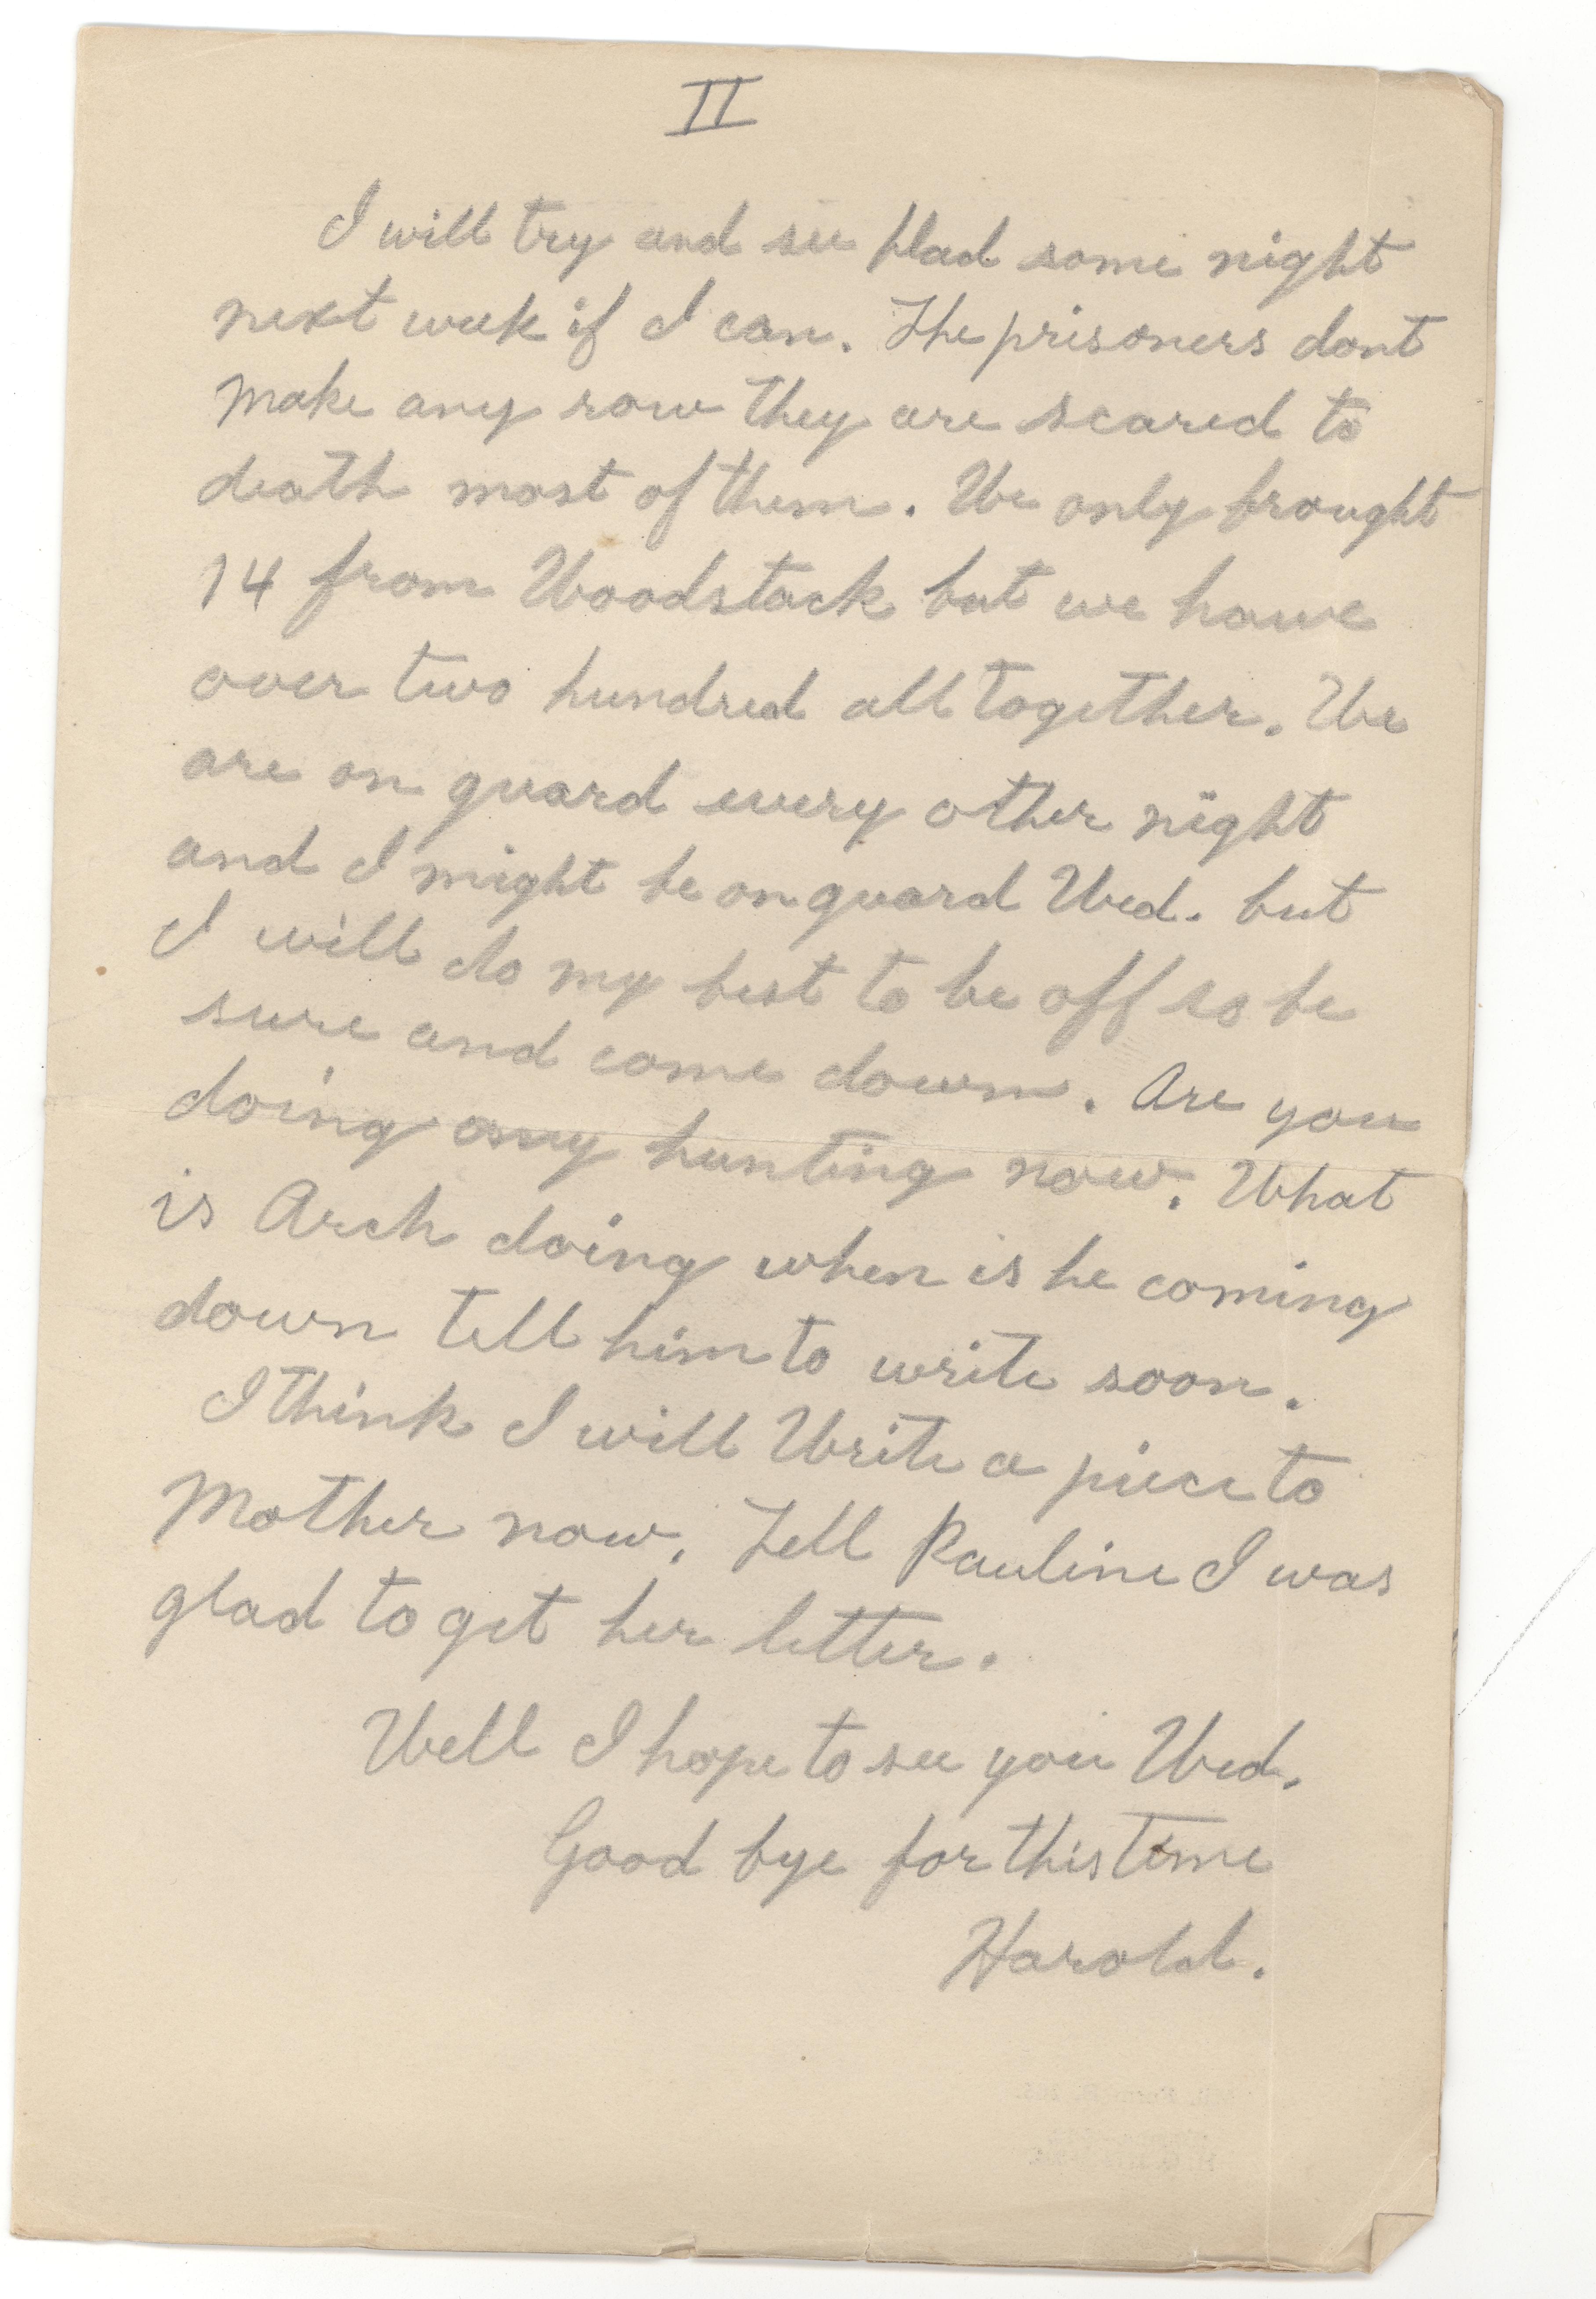 II
I will try and see Glad some night
next week if I can. The prisoners dont
make any row they are scared to
death most of them. We only brought
14 from Woodstock but we have
over two hundred all together. We
are on guard every other night
and I might be on guard Wed. but
I will do my best to be off so be
sure and come down. Are you
doing any hunting now. What
is Arch doing when is he coming
down tell him to write soon.
I think I will Write a piece to
Mother now. Tell Pauline I was
glad to get her letter.
Well I hope to see you Wed.
Good bye for this time
Harold.